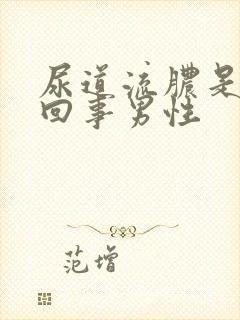 尿道流膿是
回事男性
范增